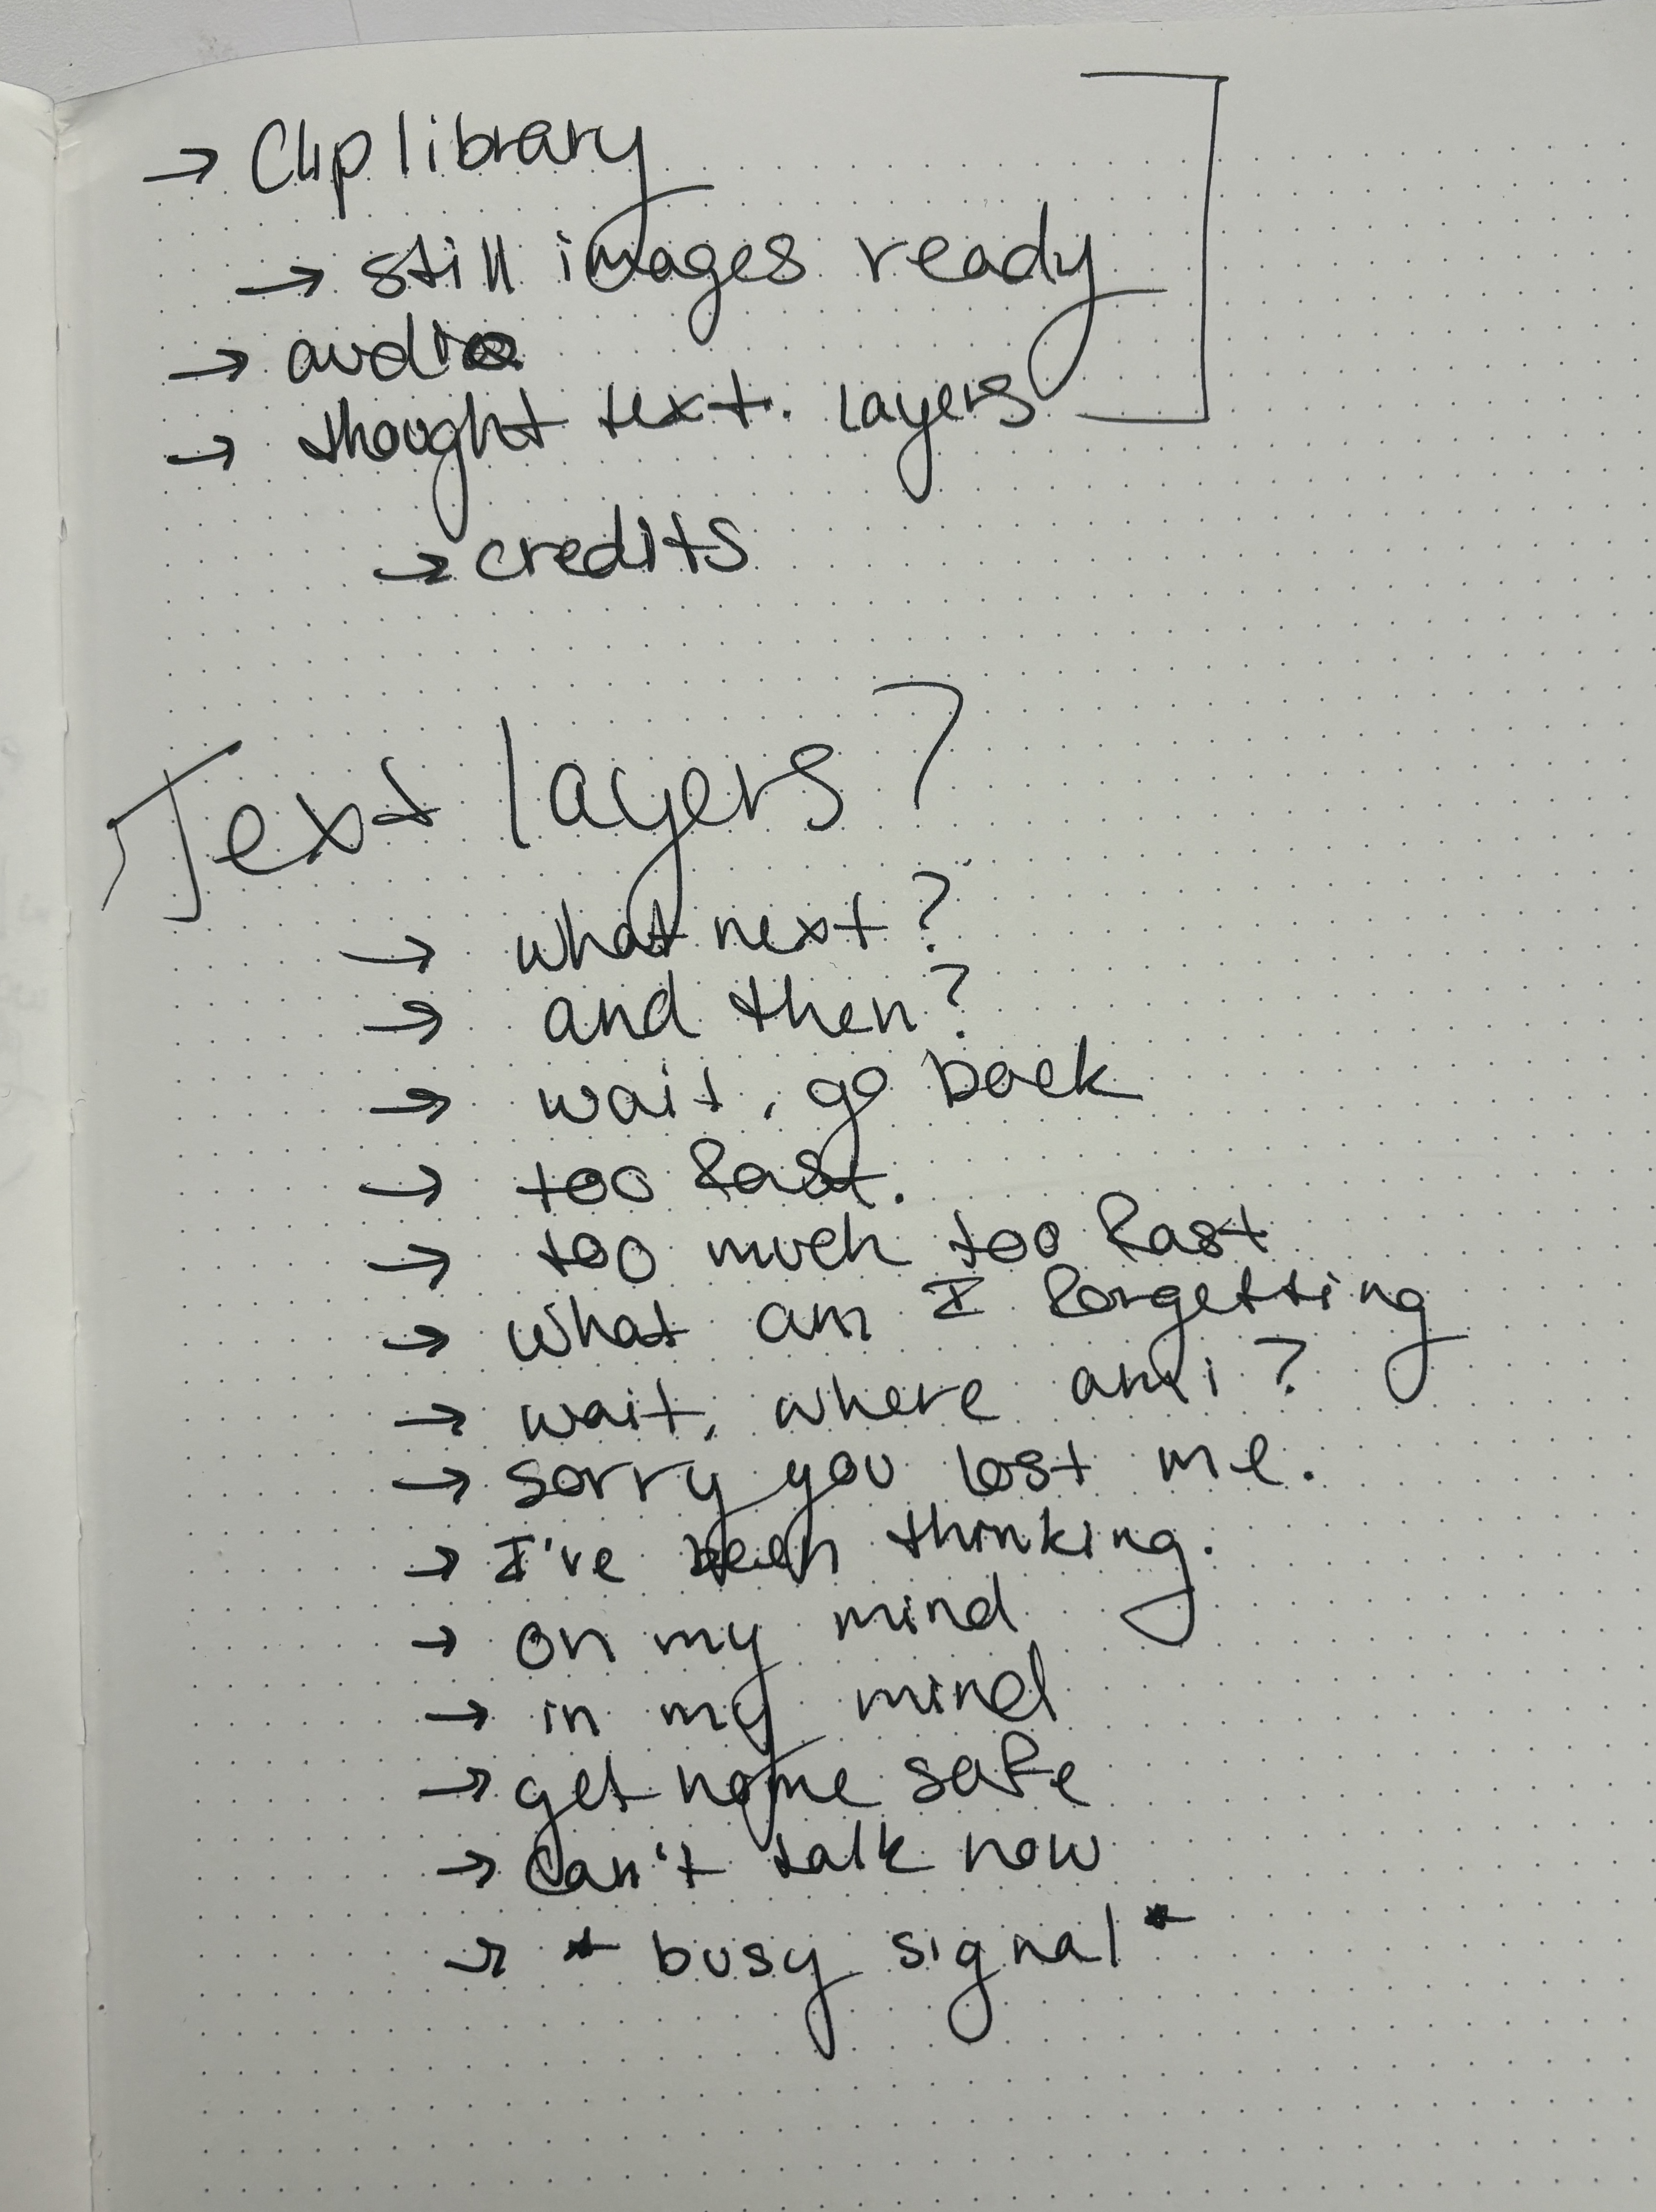 → Clip library
→ still images ready
→ audio
→ thought text. layers
→ credits
Text layers?
→ what next?
→ and then?
→ wait, go back
→ too fast.
→ too much too fast
→ what am I forgetting
→ wait, where am i?
→ sorry you lost me.
→ I've been thinking.
→ on my mind
→ in my mind
→ get home safe
→ can't talk now
→ * busy signal *